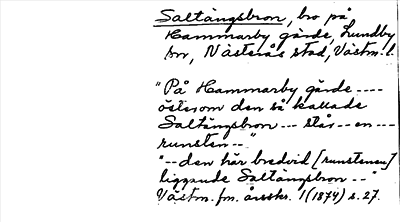 Saltängsbron, bro på
Hammarby gärde, Lundby
sn, Västerås stad, Västm. l.
"På Hammarby gärde ----
österom den så kallade
Saltängsbron --- står -- en ---
runsten -- "
"-- den här bredvid [runstenen]
liggande Saltängsbron -- "
Västm. fm. årsskr. 1 (1874) s. 27.